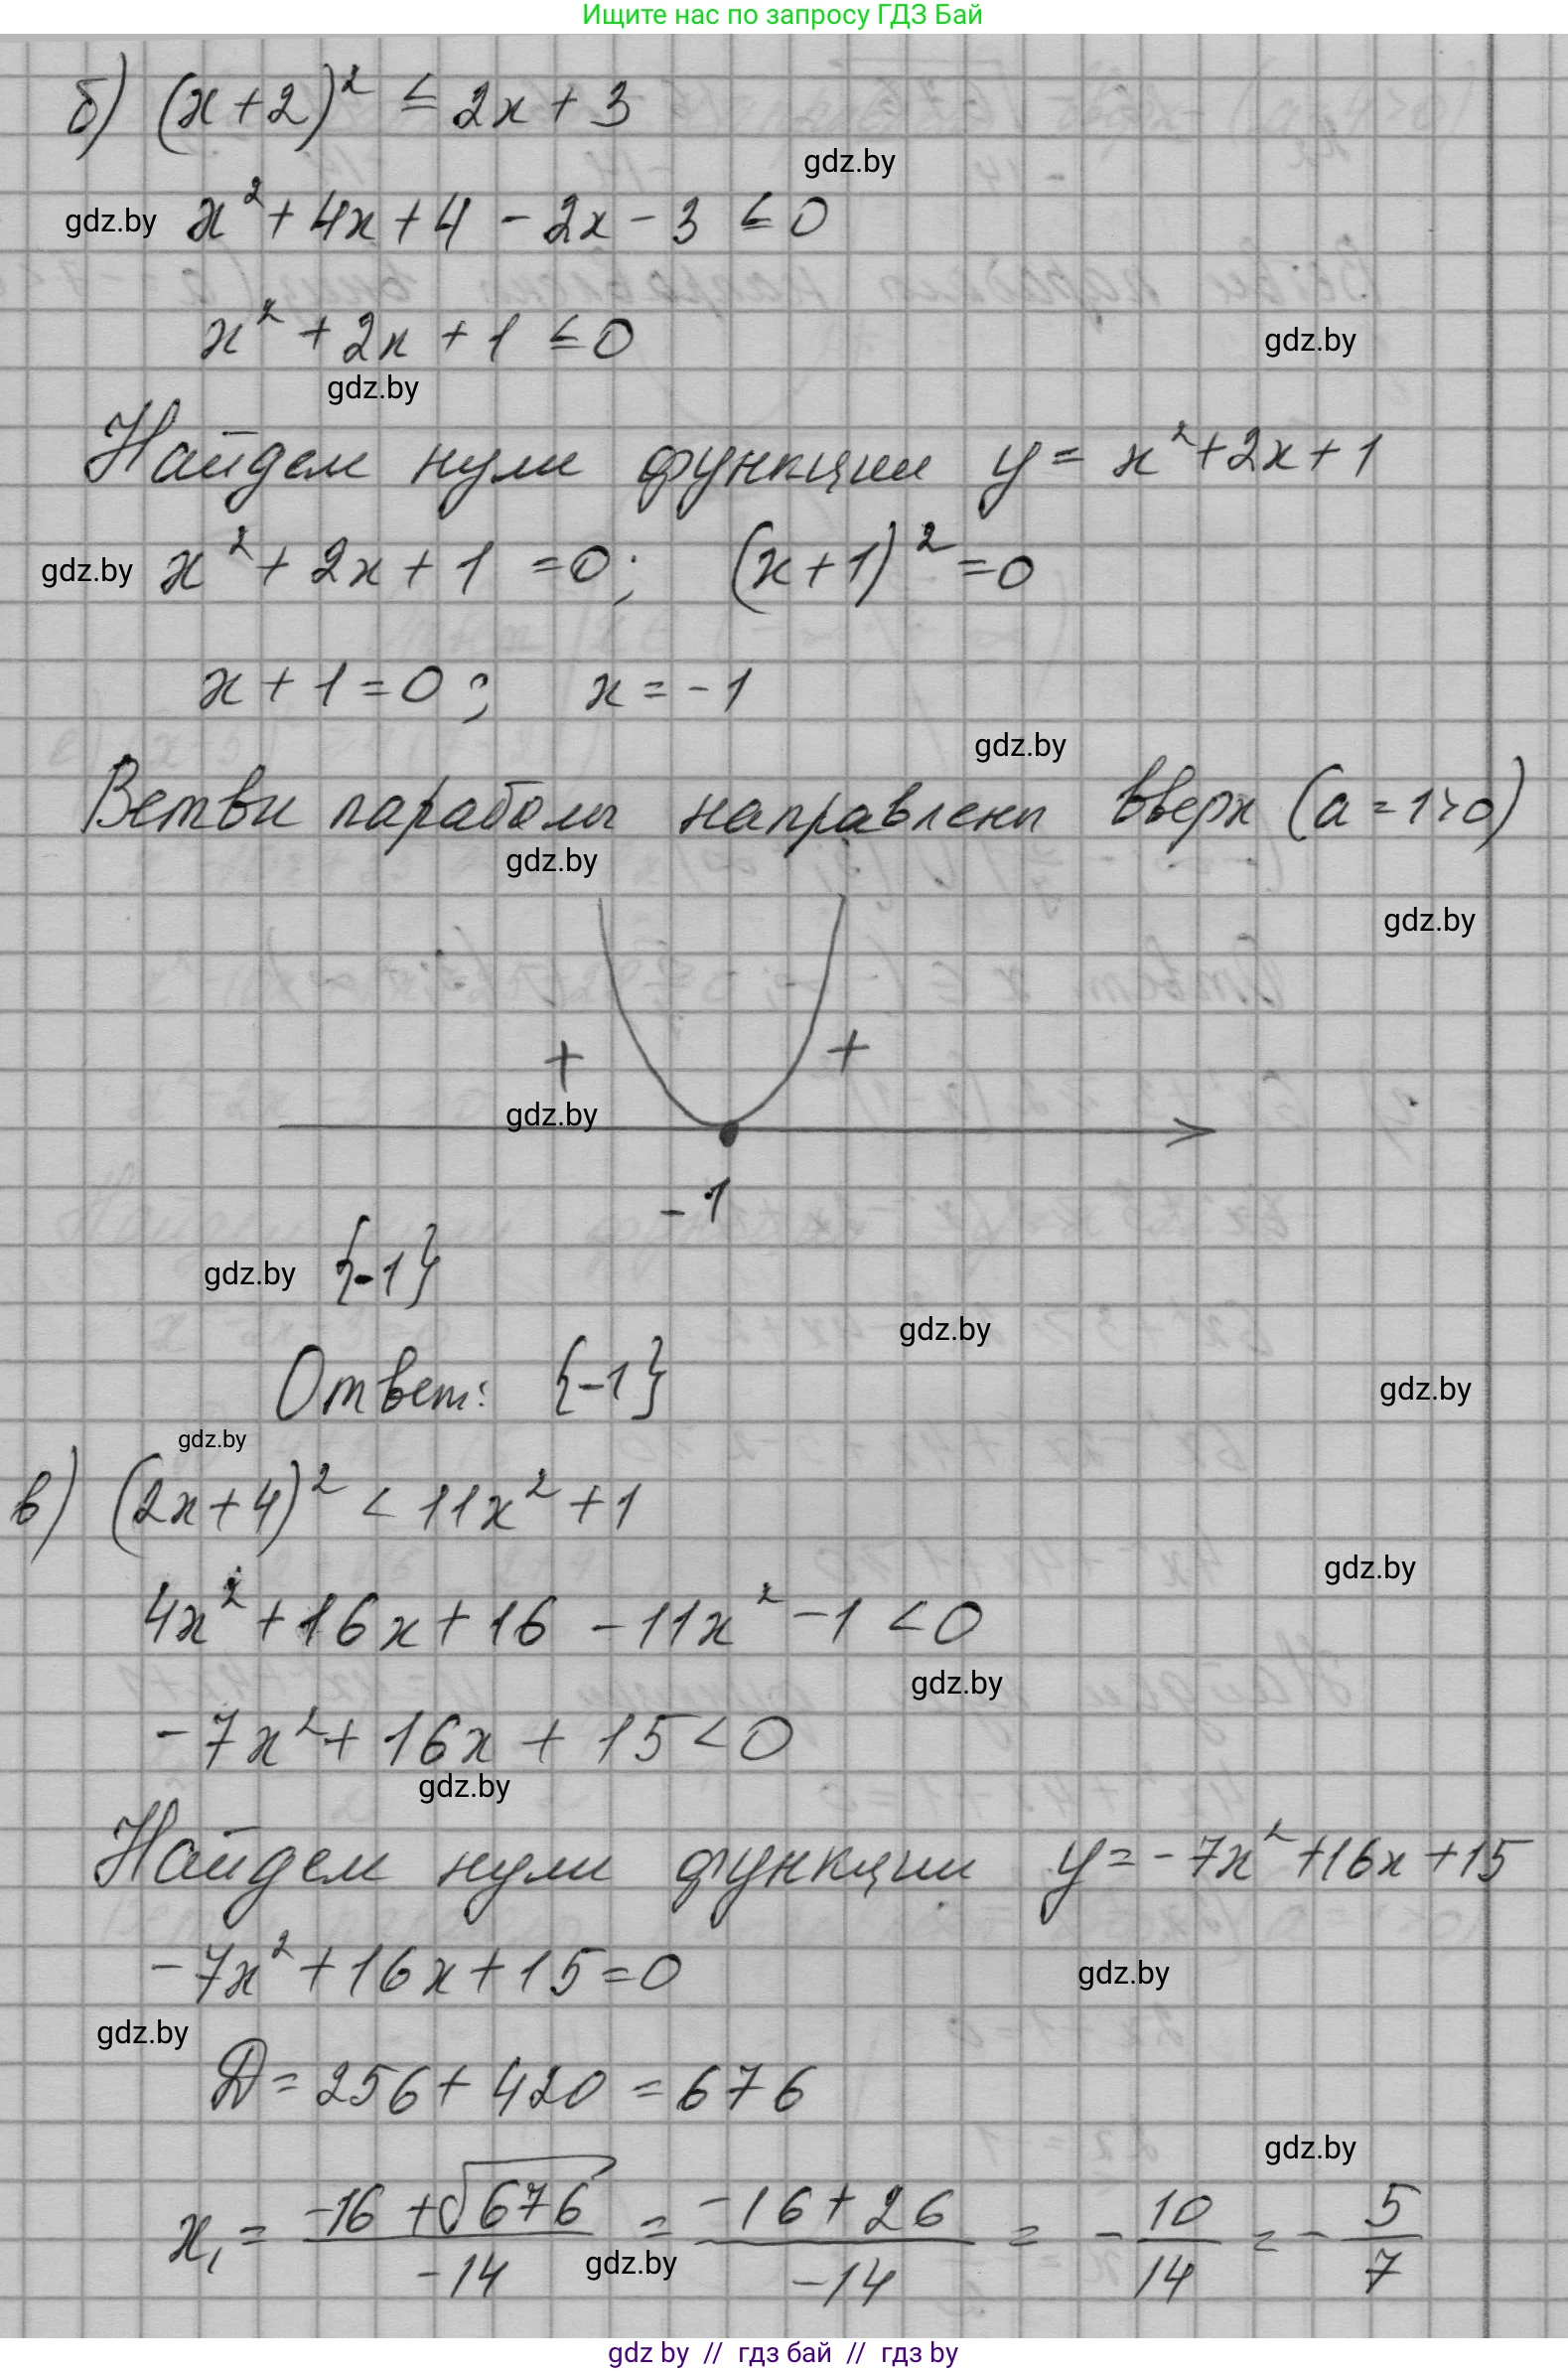 Ищите нас по запросу ГДЗ Бай
б) (x+2)² ≤ 2x + 3
gdz.by
gdz.by x² + 4x + 4 - 2x - 3 ≤ 0
x² + 2x + 1 ≤ 0
gdz.by
gdz.by
Найдем нули функции y = x² + 2x + 1
gdz.by x² + 2x + 1 = 0; (x+1)² = 0
x + 1 = 0; x = -1
gdz.by
Ветви параболы направлены вверх (a = 1 > 0)
gdz.by
gdz.by
+ +
gdz.by
-1
gdz.by {-1}
gdz.by
Ответ: {-1}
gdz.by
gdz.by
в) (2x+4)² < 11x² + 1
gdz.by
4x² + 16x + 16 - 11x² - 1 < 0
gdz.by
-7x² + 16x + 15 < 0
gdz.by
Найдем нули функции y = -7x² + 16x + 15
-7x² + 16x + 15 = 0
gdz.by
gdz.by
D = 256 + 420 = 676
gdz.by
x₁ = (-16 + √676)/(-14) = (-16 + 26)/(-14) = -10/14 = -5/7
gdz.by
gdz by // гдз бай // гдз by